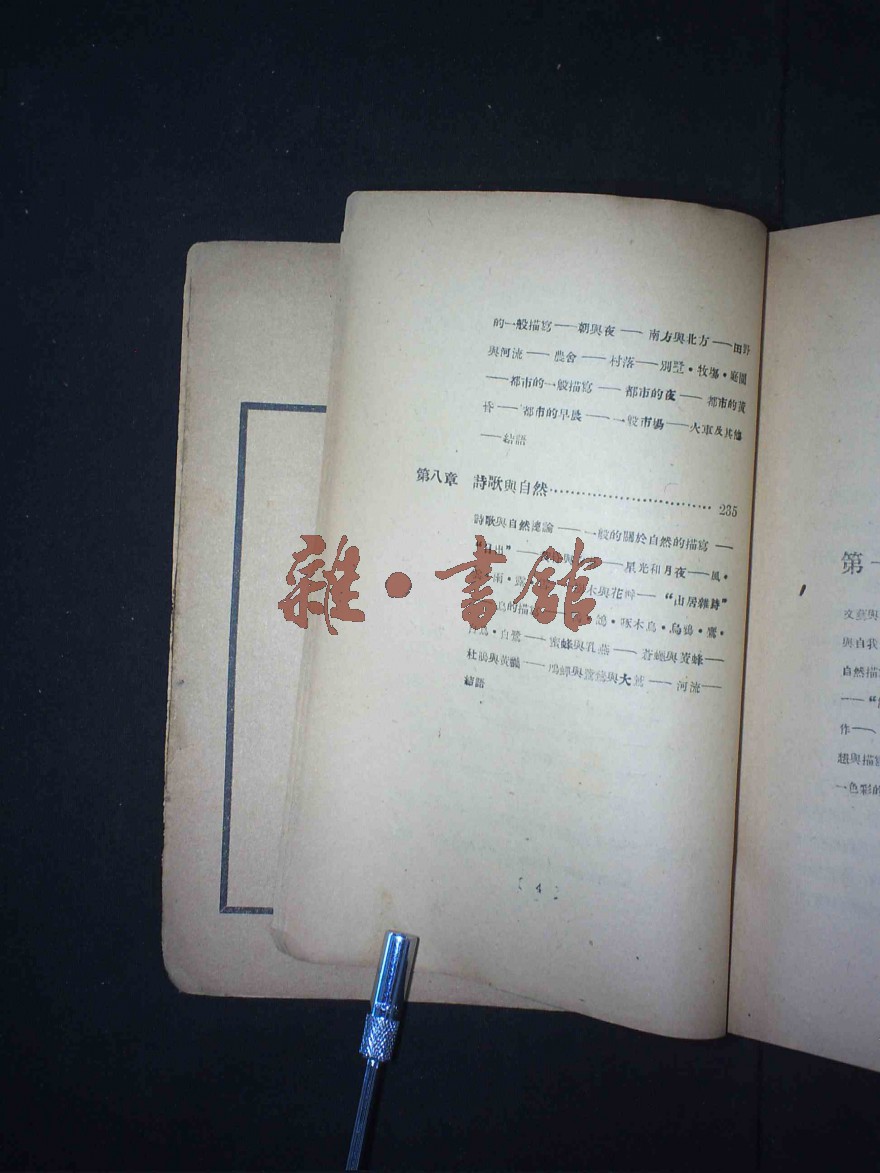 的一般描寫——朝與夜——南方與北方——田野
與河流——農舍——村落——別墅・牧場・庭園
——都市的一般描寫——都市的夜——都市的黃
昏——都市的早晨——一般市場——火車及其他
——結語
第八章 詩歌與自然 235
詩歌與自然總論——一般的關於自然的描寫——
“日出”——與——星光和月夜——風・
・雨・露木與花卉——“山居雜詩”
鳥的描寫・啄木鳥・烏鴉・鷹・
・白鷺——蜜蜂與孔燕——蒼蠅與黃蜂——
杜鵑與黃鸝——與與大——河流——
結語
[ 4 ]
雜・書館
第一
文藝與
與自我
自然描
作——
想與描寫
一色彩的